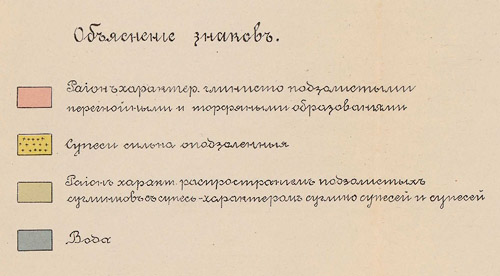 Объясненіе знаковъ.
Районъ характер. глинисто подзолистыми
перегнойными и торфяными образованіями
Супеси сильно оподзоленныя
Районъ характ. распространеніемъ подзолистыхъ
суглинковъ съ супесь-характеромъ суглино супесей и супесей
Вода